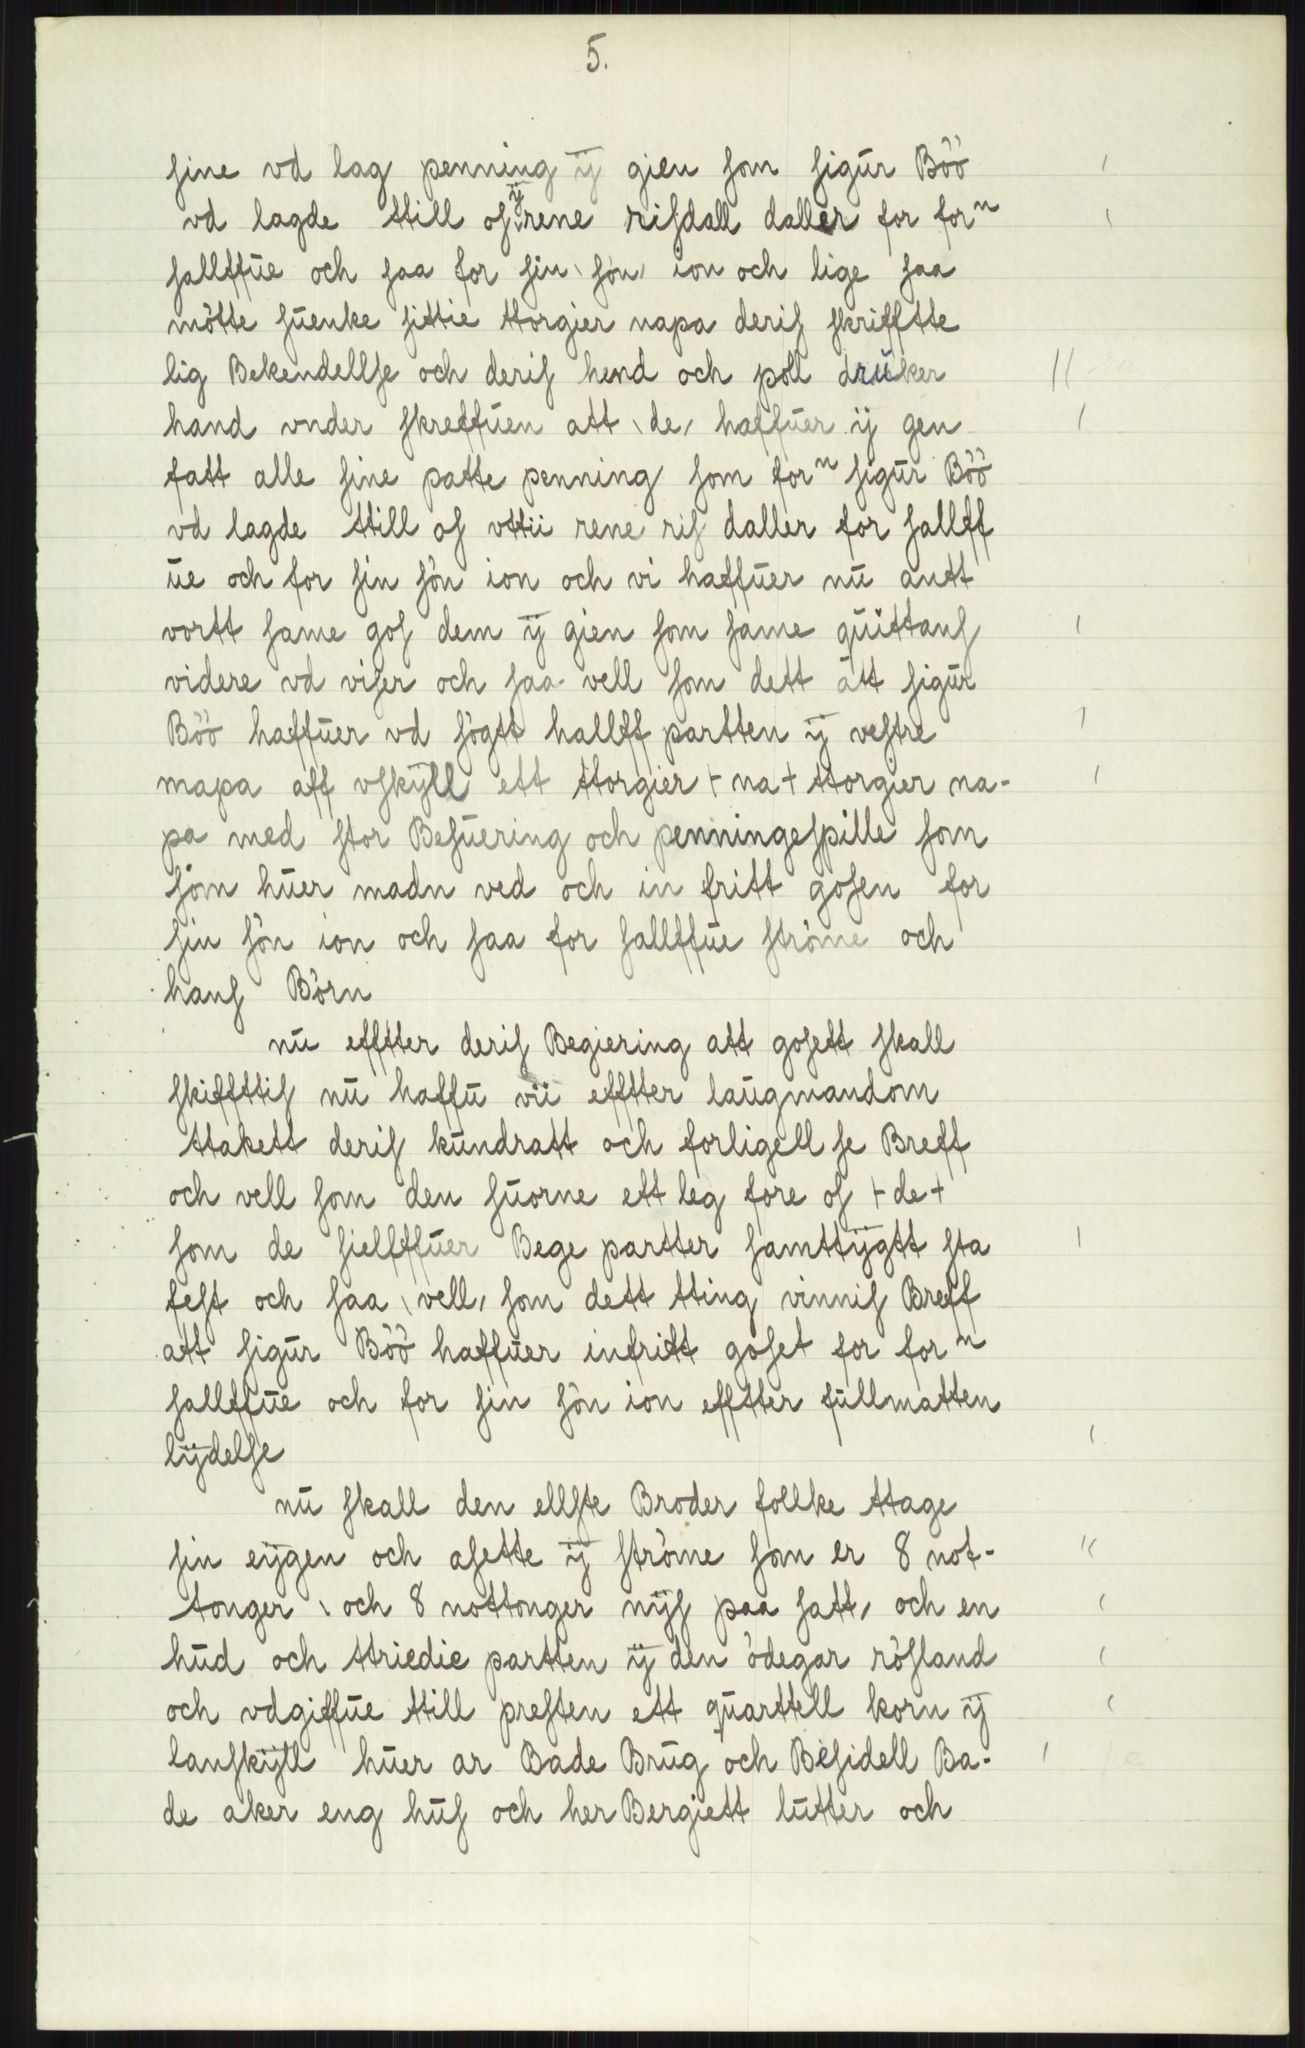 5.
sine vd lag penning ÿ gien som sigŭr Böö
vd lagde till os ÿ rene risdall daller for forⁿ
sallffŭe och saa for sin \ sön / ion och lige saa
mötte sŭenke sittie ttorgier napa deris skrifftte
lig Bekendellse och deris hend och poll drŭker
hand vnder skreffŭen att \ de / haffŭer ÿ gen
fatt alle sine patte penning som forⁿ sigŭr Böö
vd lagde till os vttii rene ris daller for sallff
ŭe och for sin sön ion och vi haffŭer nŭ antt
vortt same gos dem ÿ gien som same qŭittans
videre vd viser och saa vell som dett att sigŭr
Böö haffŭer vd sögtt hallff partten ÿ vestre
mapa aff vskÿll ett ttorgier + na + ttorgier na-
pa med stor Besŭering och penningespille som
som hŭer madn ved och in fritt gosen for
sin sön ion och saa for sallffŭe ströme och
hans Börn
nŭ efftter deris Begiering att gosett skall
skiffttis nŭ haffŭ vii efftter laŭgmandom
ttakett deris kŭndratt och forligellse Breff
och vell som den sŭorne ett leg fore os + de +
som de sielffŭer Bege partter samttÿgtt sta
fest och saa \ vell / som dett tting vinnis Breff
att sigŭr Böö haffŭer infritt goset for forⁿ
sallffŭe och for sin sön ion efftter fŭllmatten
lÿdelse
nŭ skall den ellste Broder follke ttage
sin eÿgen och asette ÿ ströme som er 8 not-
tonger \ och 8 nottonger nÿs paa satt / och en
hŭd och ttriedie partten ÿ den ödegar rösland
och vdgiffŭe till presten ett qŭarttell korn ÿ
lanskÿll hŭer ar Bade Brŭg och Besidell Ba-
de aker eng hŭs och her Bergiett lŭtter och